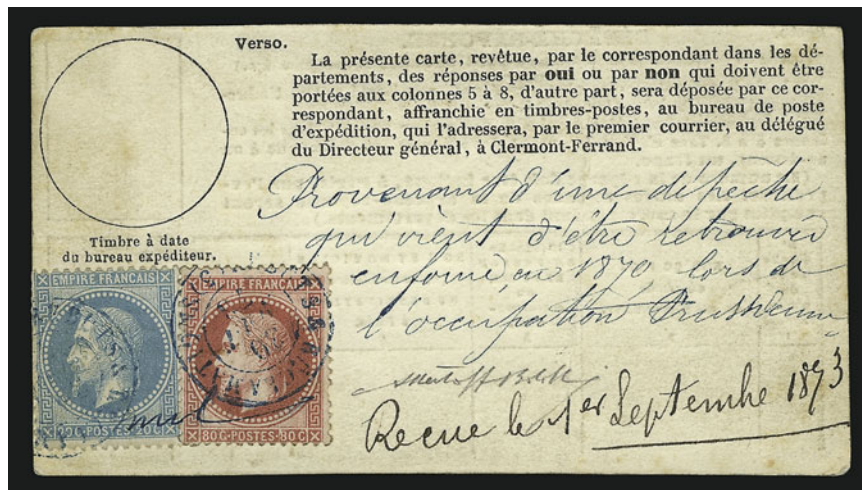 Verso.
La présente carte, revêtue, par le correspondant dans les dé-
partements, des réponses par oui ou par non qui doivent être
portées aux colonnes 5 à 8, d'autre part, sera déposée par ce cor-
respondant, affranchie en timbres-postes, au bureau de poste
d'expédition, qui l'adressera, par le premier courrier, au délégué
du Directeur général, à Clermont-Ferrand.
Provenant d'une dépêche
qui vient d'être retrouvée
enfouie en 1870 lors de
l'occupation Prussienne
Timbre à date
du bureau expéditeur.
EMPIRE FRANÇAIS
20 C·POSTES·20 C
EMPIRE FRANÇAIS
80 C·POSTES·80 C
Recue le 1er Septembe 1873